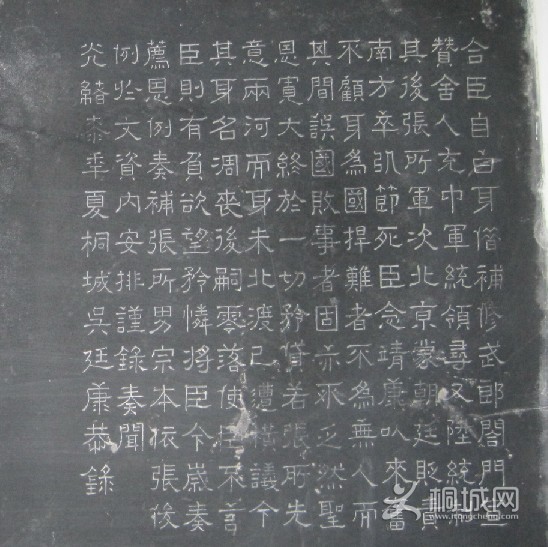 合臣自白身借補修武郎閤門宣
贊舍人充中軍統領尋又陞統制
其後張所軍次北京蒙朝廷貶責
南方卒以節死臣念靖康以來奮
不顧身為國捍難者不為無人而
其間誤國敗事者固亦不乏然聖
恩寬大終於一切矜貸若張所先
意兩河而身未北渡已遭橫議今
其身名凋喪後嗣零落使臣不言
臣則有負欲望矜憐將臣今歲奏
薦恩例奏補張所男宗本依張俊
例於文資內安排謹錄奏聞
光緒桼秊夏桐城吳廷康恭錄
桐城网
www.itongcheng.com